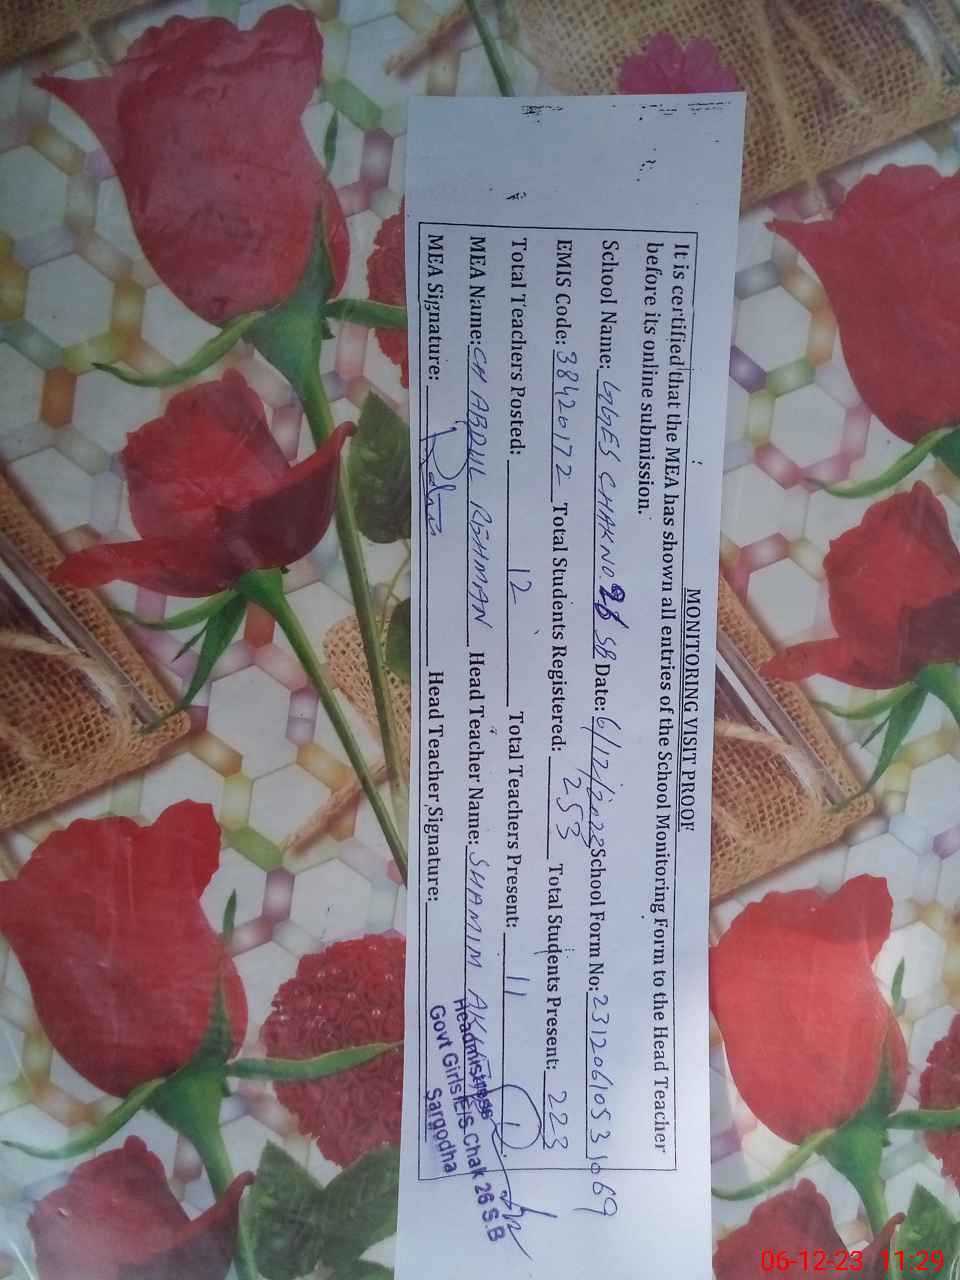 MONITORING VISIT PROOF
It is certified that the MEA has shown all entries of the School Monitoring Form to the Head Teacher
before its online submission.
School Name: GGES CHAK NO. 26 SB Date: 6/12/2023 School Form No: 23120610531069
EMIS Code: 38420172 Total Students Registered: 253 Total Students Present: 223
Total Teachers Posted: 12 Total Teachers Present: 11
MEA Name: CH ABDUL REHMAN Head Teacher Name: SHAMIM AKHTAR
MEA Signature: Head Teacher Signature:
Headmistress
Govt Girls E/S Chak 26 S.B
Sargodha
06-12-23 11:29